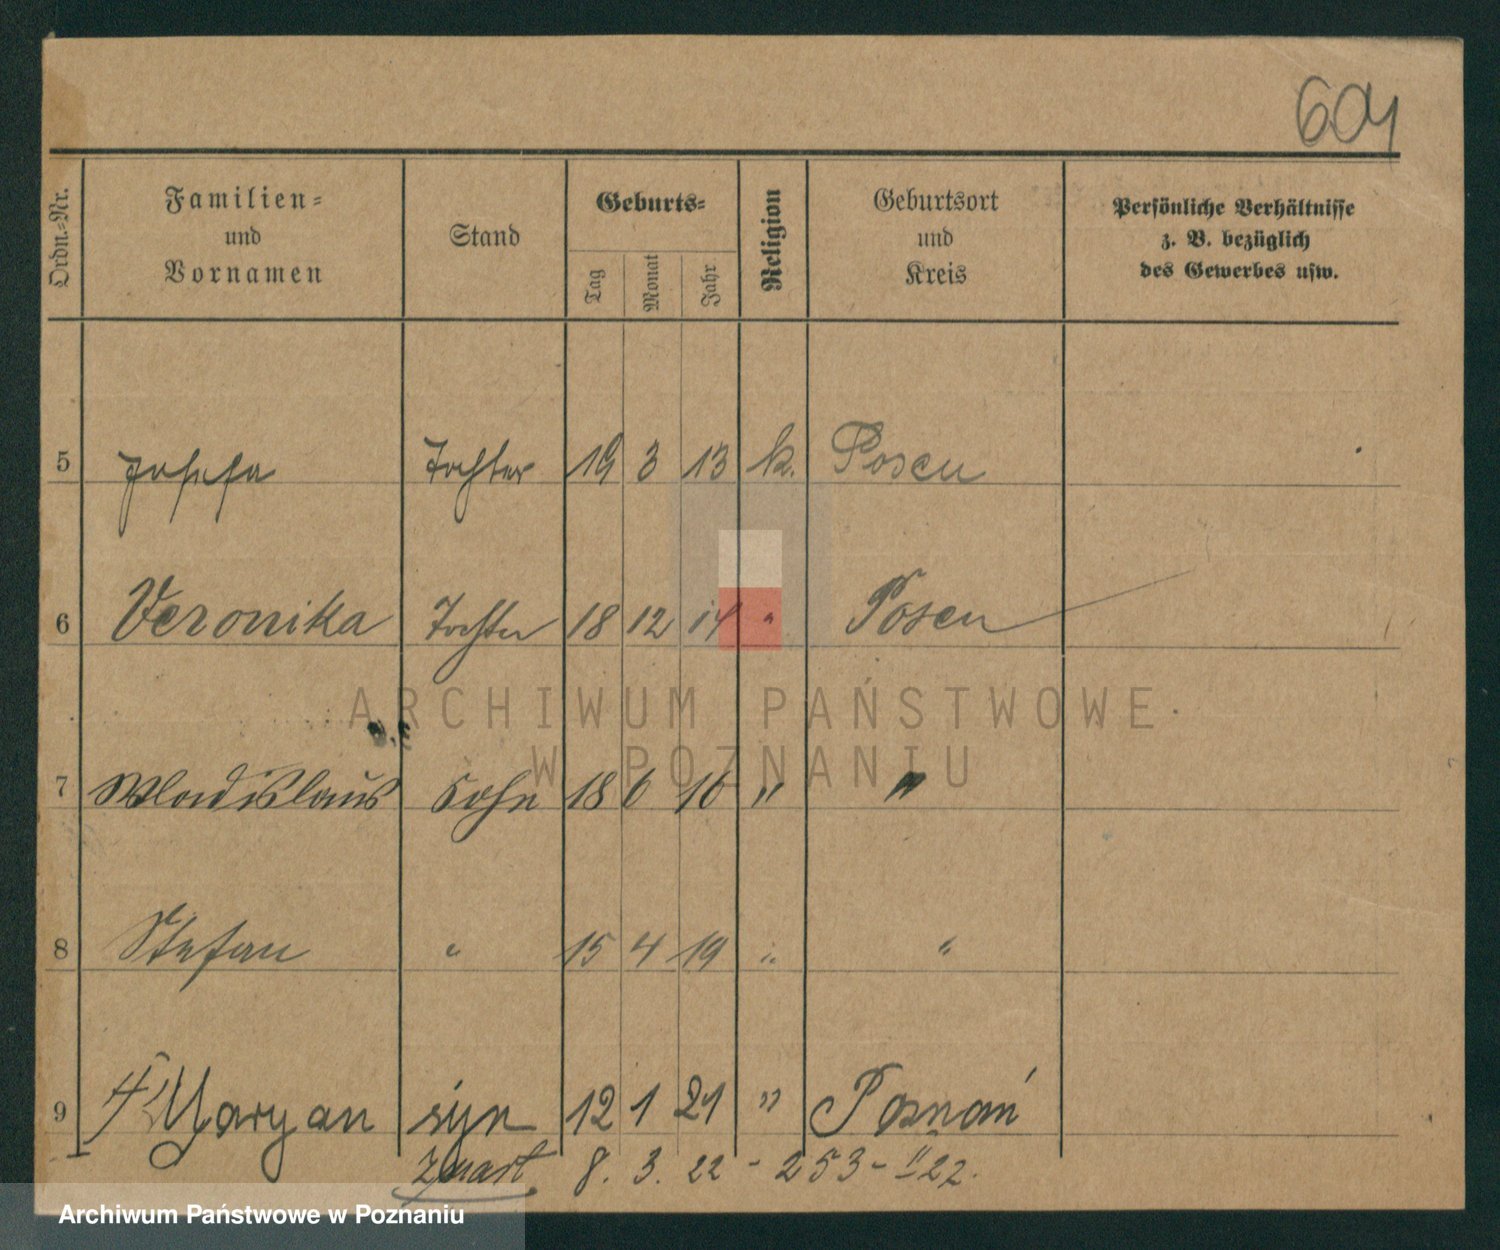 604
Ordn.-Nr. Familien- und Vornamen Stand Geburts- Tag Monat Jahr Religion Geburtsort und Kreis Persönliche Verhältnisse z. B. bezüglich des Gewerbes usw.
5 Josefa Tochter 19 3 13 k. Posen
6 Veronika Tochter 18 12 14 " Posen
ARCHIWUM PAŃSTWOWE
W POZNANIU
7 Wladislaus Sohn 18 6 16 " "
8 Stefan " 15 4 19 " "
9 Maryan syn 12 1 21 " Poznań
zmarł 8. 3. 22 - 253 - II 22.
Archiwum Państwowe w Poznaniu